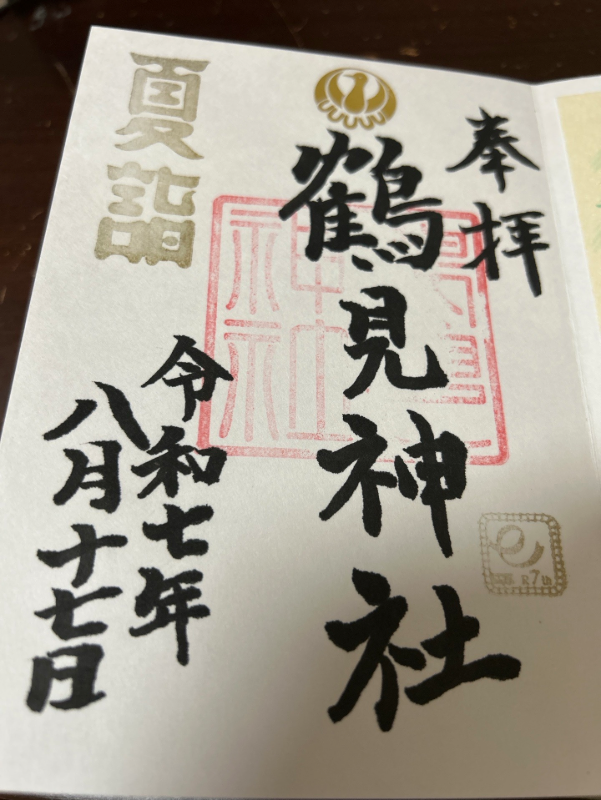 奉拝
鶴見神社
令和七年
八月十七日
夏詣
R7th